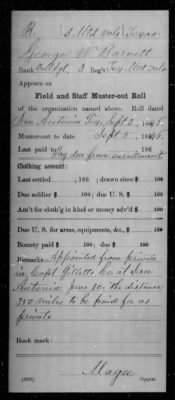 B. | 3 Mtd vols | Texas.
George W Barnett
Rank Ord Sgt, 3 Reg't Tex Mtd vols
Appears on
Field and Staff Muster-out Roll
of the organization named above. Roll dated
San Antonio Tex, Sept 2, 186
Muster-out to date Sept 5, 186
Last paid to 186
Pay due from enrolment
Clothing account:
Last settled , 186 ; drawn since $ 100
Due soldier $ 100; due U. S. $ 100
Am't for cloth'g in kind or money adv'd $ 100
Due U. S. for arms, equipments, &c., $ 100
Bounty paid $ 100; due $ 100
Remarks: Appointed from private
in Capt Gilletts Co at San
Antonio June 30. the distance
250 miles to be paid for as
private
Book mark:
Magee
Copyist.